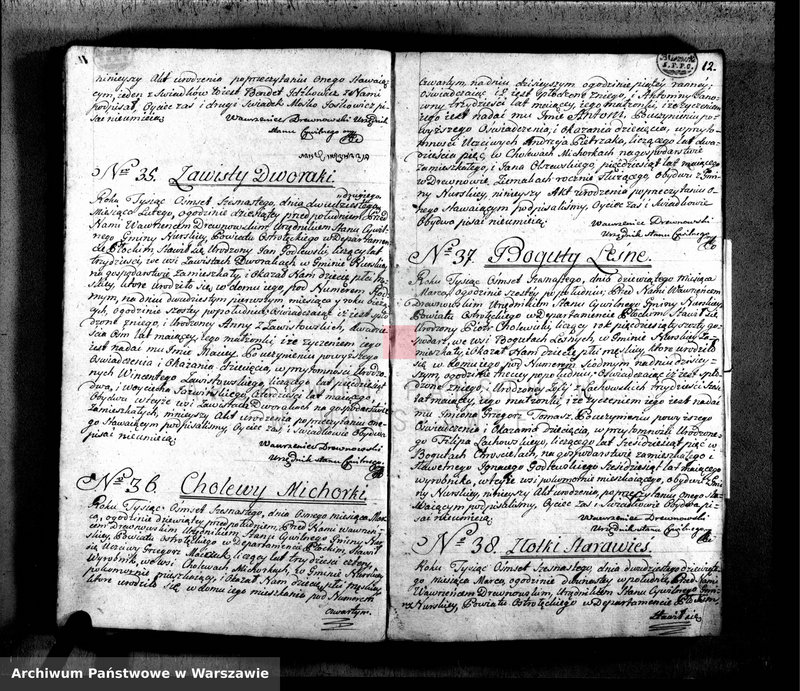 ninieyszy Akt urodzenia poprzeczytaniu onego Stawaią-
cym, ieden z Swiadków Josek Bendet Joskowicz z Nami
podpisał. Oyciec zas i drugi Swiadek Mosko Joskowicz pi-
sać nieumieią.
Wawrzeniec Drewnowski Urzędnik
Stanu Cywilnego
Nro 35. Zawisty Dworaki.
Roku Tysiąc Osmset Szesnastego, dnia dwudziestego drugiego
Miesiąca Lutego, o godzinie dziesiątey przed południem, Przed
Nami Wawrzeńcem Drewnowskim Urzędnikiem Stanu Cywil-
nego Gminy Nurskiey, Powiatu Ostrołęckiego w Departamen-
cie Płockim Stawił się Urodzony Jan Godlewski, liczący lat
trzydzieści, we wsi Zawistach Dworakach w Gminie Nurskiey
na gospodarstwie zamieszkały, i Okazał Nam dziecię płci mę-
skiey, które urodziło się w domu iego pod Numerem
, na dniu dwudziestym pierwszym miesiąca y roku bieżą-
cych, o godzinie szostey popołudniu, Oświadczaiąc iż iest spło-
dzone z niego, i Urodzoney Anny z Zawistowskich, dwadzie-
ścia Osm lat maiącey, iego małżonki, iż życzeniem iego
iest nadać mu Imie Ignacy. Po uczynieniu powyższego
Oświadczenia i Okazaniu dziecięcia, w przytomności Urodzo-
nych Wincentego Zawistowskiego, liczącego lat pięćdziesiąt
dwa, i Woyciecha , czterdzieści lat maiącego,
Obydwu w teyże wsi Zawistach Dworakach na gospodarstwie
zamieszkałych, ninieyszy Akt urodzenia poprzeczytaniu one-
go Stawaiącym podpisaliśmy, Oyciec zas i Swiadkowie Obydwa
pisać nieumieią.
Wawrzeniec Drewnowski
Urzędnik Stanu Cywilnego
Nro 36. Cholewy Michorki.
Roku Tysiąc Osmset Szesnastego, dnia Osmego miesiąca Mar-
ca, o godzinie dziewiątey przed południem, Przed Nami Wawrzeń-
cem Drewnowskim, Urzędnikiem Stanu Cywilnego Gminy Nur-
skiey, Powiatu Ostrołęckiego w Departamencie Płockim, Stawił
się Uczciwy Grzegorz , liczący lat trzydzieści cztery,
Wyrobnik, we wsi Cholewach Michorkach, w Gminie Nurskiey
pokomornie mieszkaiący, i Okazał Nam dziecię płci męskiey,
które urodziło się w domu iego mieszkania pod Numerem
czwartym
12.
czwartym na dniu dzisieyszym o godzinie piątey ranney,
Oświadczaiąc iż iest spłodzone z niego, i Antonny
, trzydzieści lat maiącey, iego małżonki, iż życzeniem
iego iest nadać mu Imie Antoni. Po uczynieniu po-
wyższego Oświadczenia, i Okazania dziecięcia, w przyto-
mności Uczciwych Andrzeja Pietrzaka, liczącego lat dwa-
dzieścia pięć, w Cholewach Michorkach na gospodarstwie
zamieszkałego, i Jana Olszewskiego, pięćdziesiąt lat maiącego
w Drewnowie Ziemakach rocznie Służącego, obydwu z Gmi-
ny Nurskiey, ninieyszy Akt urodzenia poprzeczytaniu o-
nego Stawaiącym podpisaliśmy, Oyciec zas i Swiadkowie
Obydwa pisać nieumieią.
Wawrzeniec Drewnowski
Urzędnik Stanu Cywilnego
Nro 37. Bogutty Leśne.
Roku Tysiąc Osmset Szesnastego, dnia dziewiątego miesiąca
Marca, o godzinie szostey popołudniu, Przed Nami Wawrzeńcem
Drewnowskim Urzędnikiem Stanu Cywilnego Gminy Nurskiey,
Powiatu Ostrołęckiego w Departamencie Płockim Stawił się
Urodzony Piotr Cholewski, liczący rok pięćdziesiąt szosty, go-
spodarz, we wsi Bogutach Leśnych, w Gminie Nurskiey Za-
mieszkały, i Okazał Nam dziecię płci męskiey, które urodziło się
w domu iego pod Numerem Siodmym na dniu dzisiey-
szym, o godzinie trzeciey popołudniu, Oświadczaiąc iż iest spło-
dzone z niego, i Urodzoney Zofij z Zachowskich trzydzieści Sześć
lat maiącey, iego małżonki, i iż życzeniem iego iest nadać
mu Imiona Grzegorz Tomasz. Po uczynieniu powyższego
Oświadczenia i Okazania dziecięcia, w przytomności Urodzone-
go Filipa Zachowskiego, liczącego lat Sześćdziesiąt pięć w
Bogutach Chrościelach, na gospodarstwie zamieszkałego i
Sławetnego Ignacego Godlewskiego Sześćdziesiąt lat maiącego
wyrobnika, w teyże wsi pokomornie mieszkaiącego, obydwu z Gmi-
ny Nurskiey, ninieyszy Akt urodzenia, poprzeczytaniu onego Sta-
waiącym podpisaliśmy. Oyciec zas i Swiadkowie Obydwa pi-
sać nieumieią.
Wawrzeniec Drewnowski
Urzędnik Stanu Cywilnego
Nro 38. Żołki Starawies.
Roku Tysiąc Osmset Szesnastego, dnia dwudziestego dziewiąte-
go miesiąca Marca, o godzinie dwunastey w południe, Przed Nami
Wawrzeńcem Drewnowskim, Urzędnikiem Stanu Cywilnego Gmi-
ny Nurskiey, Powiatu Ostrołęckiego w Departamencie Płockim
Stawił się
Archiwum Państwowe w Warszawie